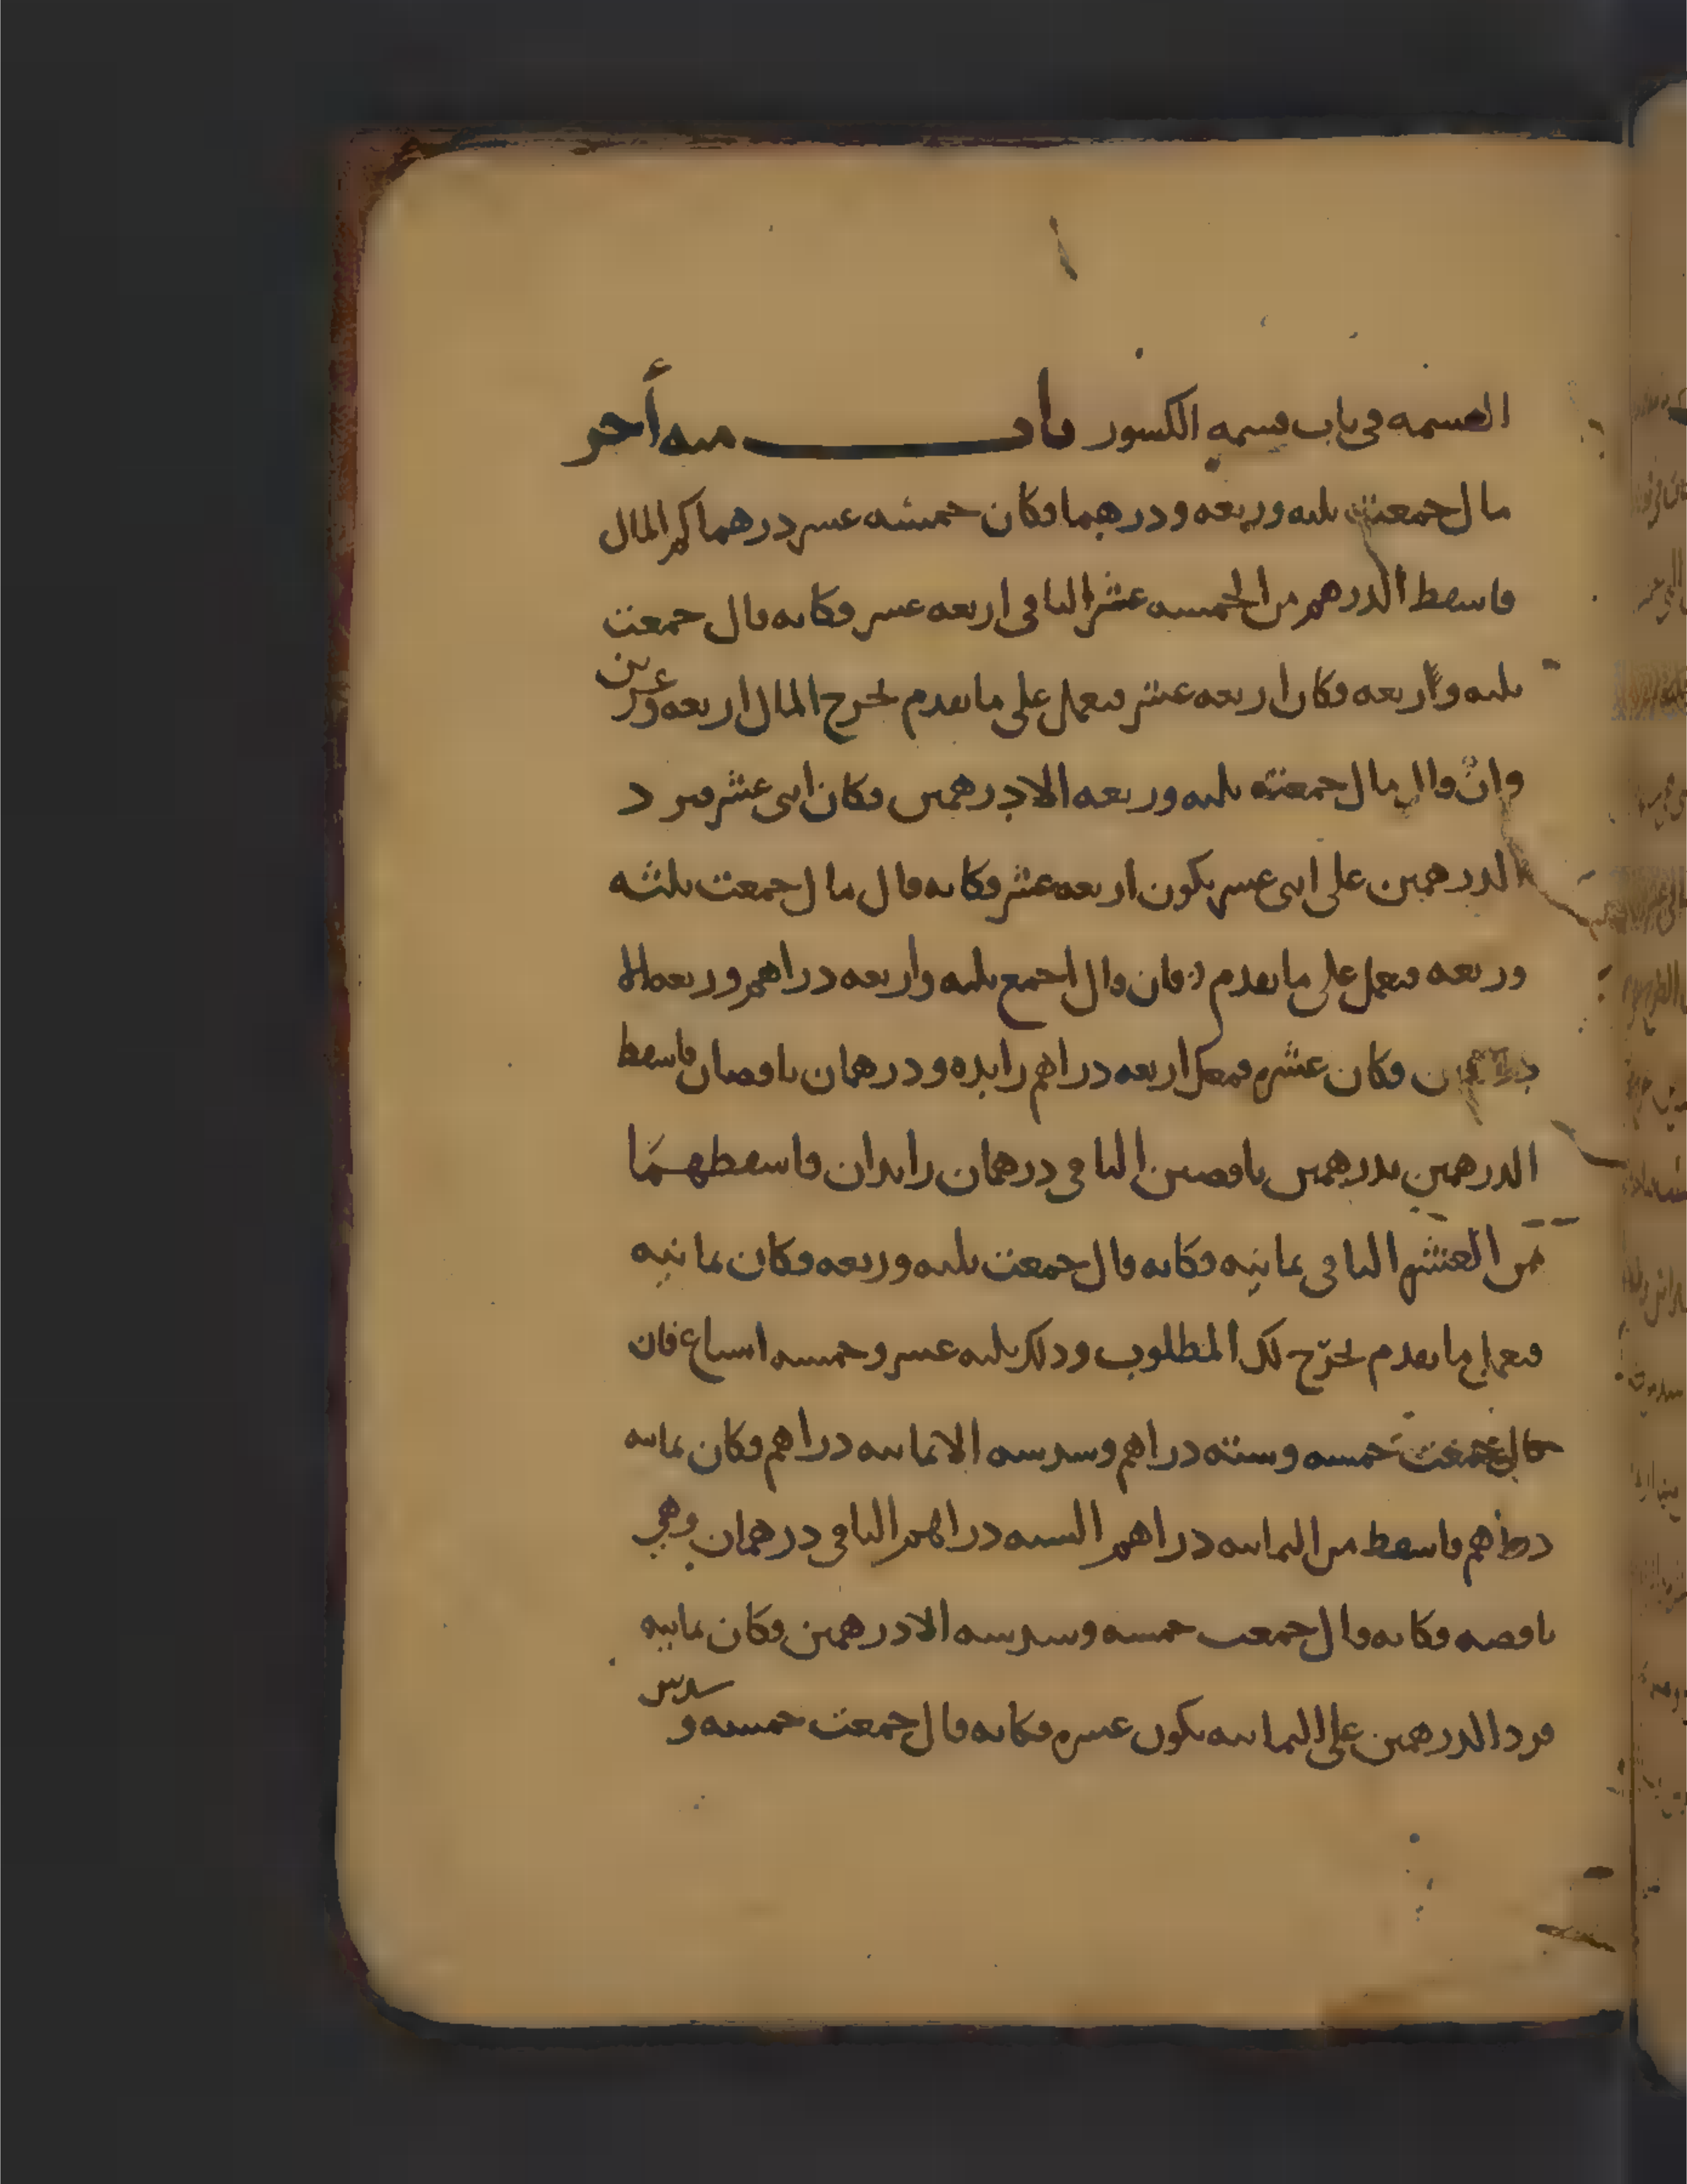 القسمة في باب قسمة الكسور باب منه أخر
مال جمعت ثلثه وربعه ودرهما فكان خمسة عشر درهما كم المال
فاسقط الدرهم من الخمسه عشر الباقي اربعه عشر فكانه قال جمعت
ثلثه واربعه فكان اربعه عشر فيعمل على ما تقدم يخرج المال اربعه وعشرين
وان قال مال جمعت ثلثه وربعه الا درهمين فكان اثنى عشر فيرد
الدرهمين على اثنى عشر يكون اربعه عشر فكانه قال مال جمعت ثلثه
وربعه فيعمل على ما تقدم فان قال اجمع ثلثه واربعه دراهم وربعه الا
فكان عشره فمعك اربعه دراهم زايده ودرهمان ناقصان فاسقط
الدرهمين بدرهمين ناقصين الباقي درهمان زايدان فاسقطهما
من العشره الباقي ثمانيه فكانه قال جمعت ثلثه وربعه فكان ثمانيه
فيعمل ما تقدم يخرج لك المطلوب وذلك ثلثه عشر وخمسه اسباع فان
قال جمعت خمسه وسته دراهم وسدسه الا ثمانيه دراهم فكان ثمانيه
دراهم فاسقط من الثمانيه دراهم السته دراهم الباقي درهمان وهي
ناقصه فكانه قال جمعت خمسه وسدسه الا درهمين فكان ثمانيه
فرد الدرهمين على الثمانيه يكون عشره فكانه قال جمعت خمسه وسدس